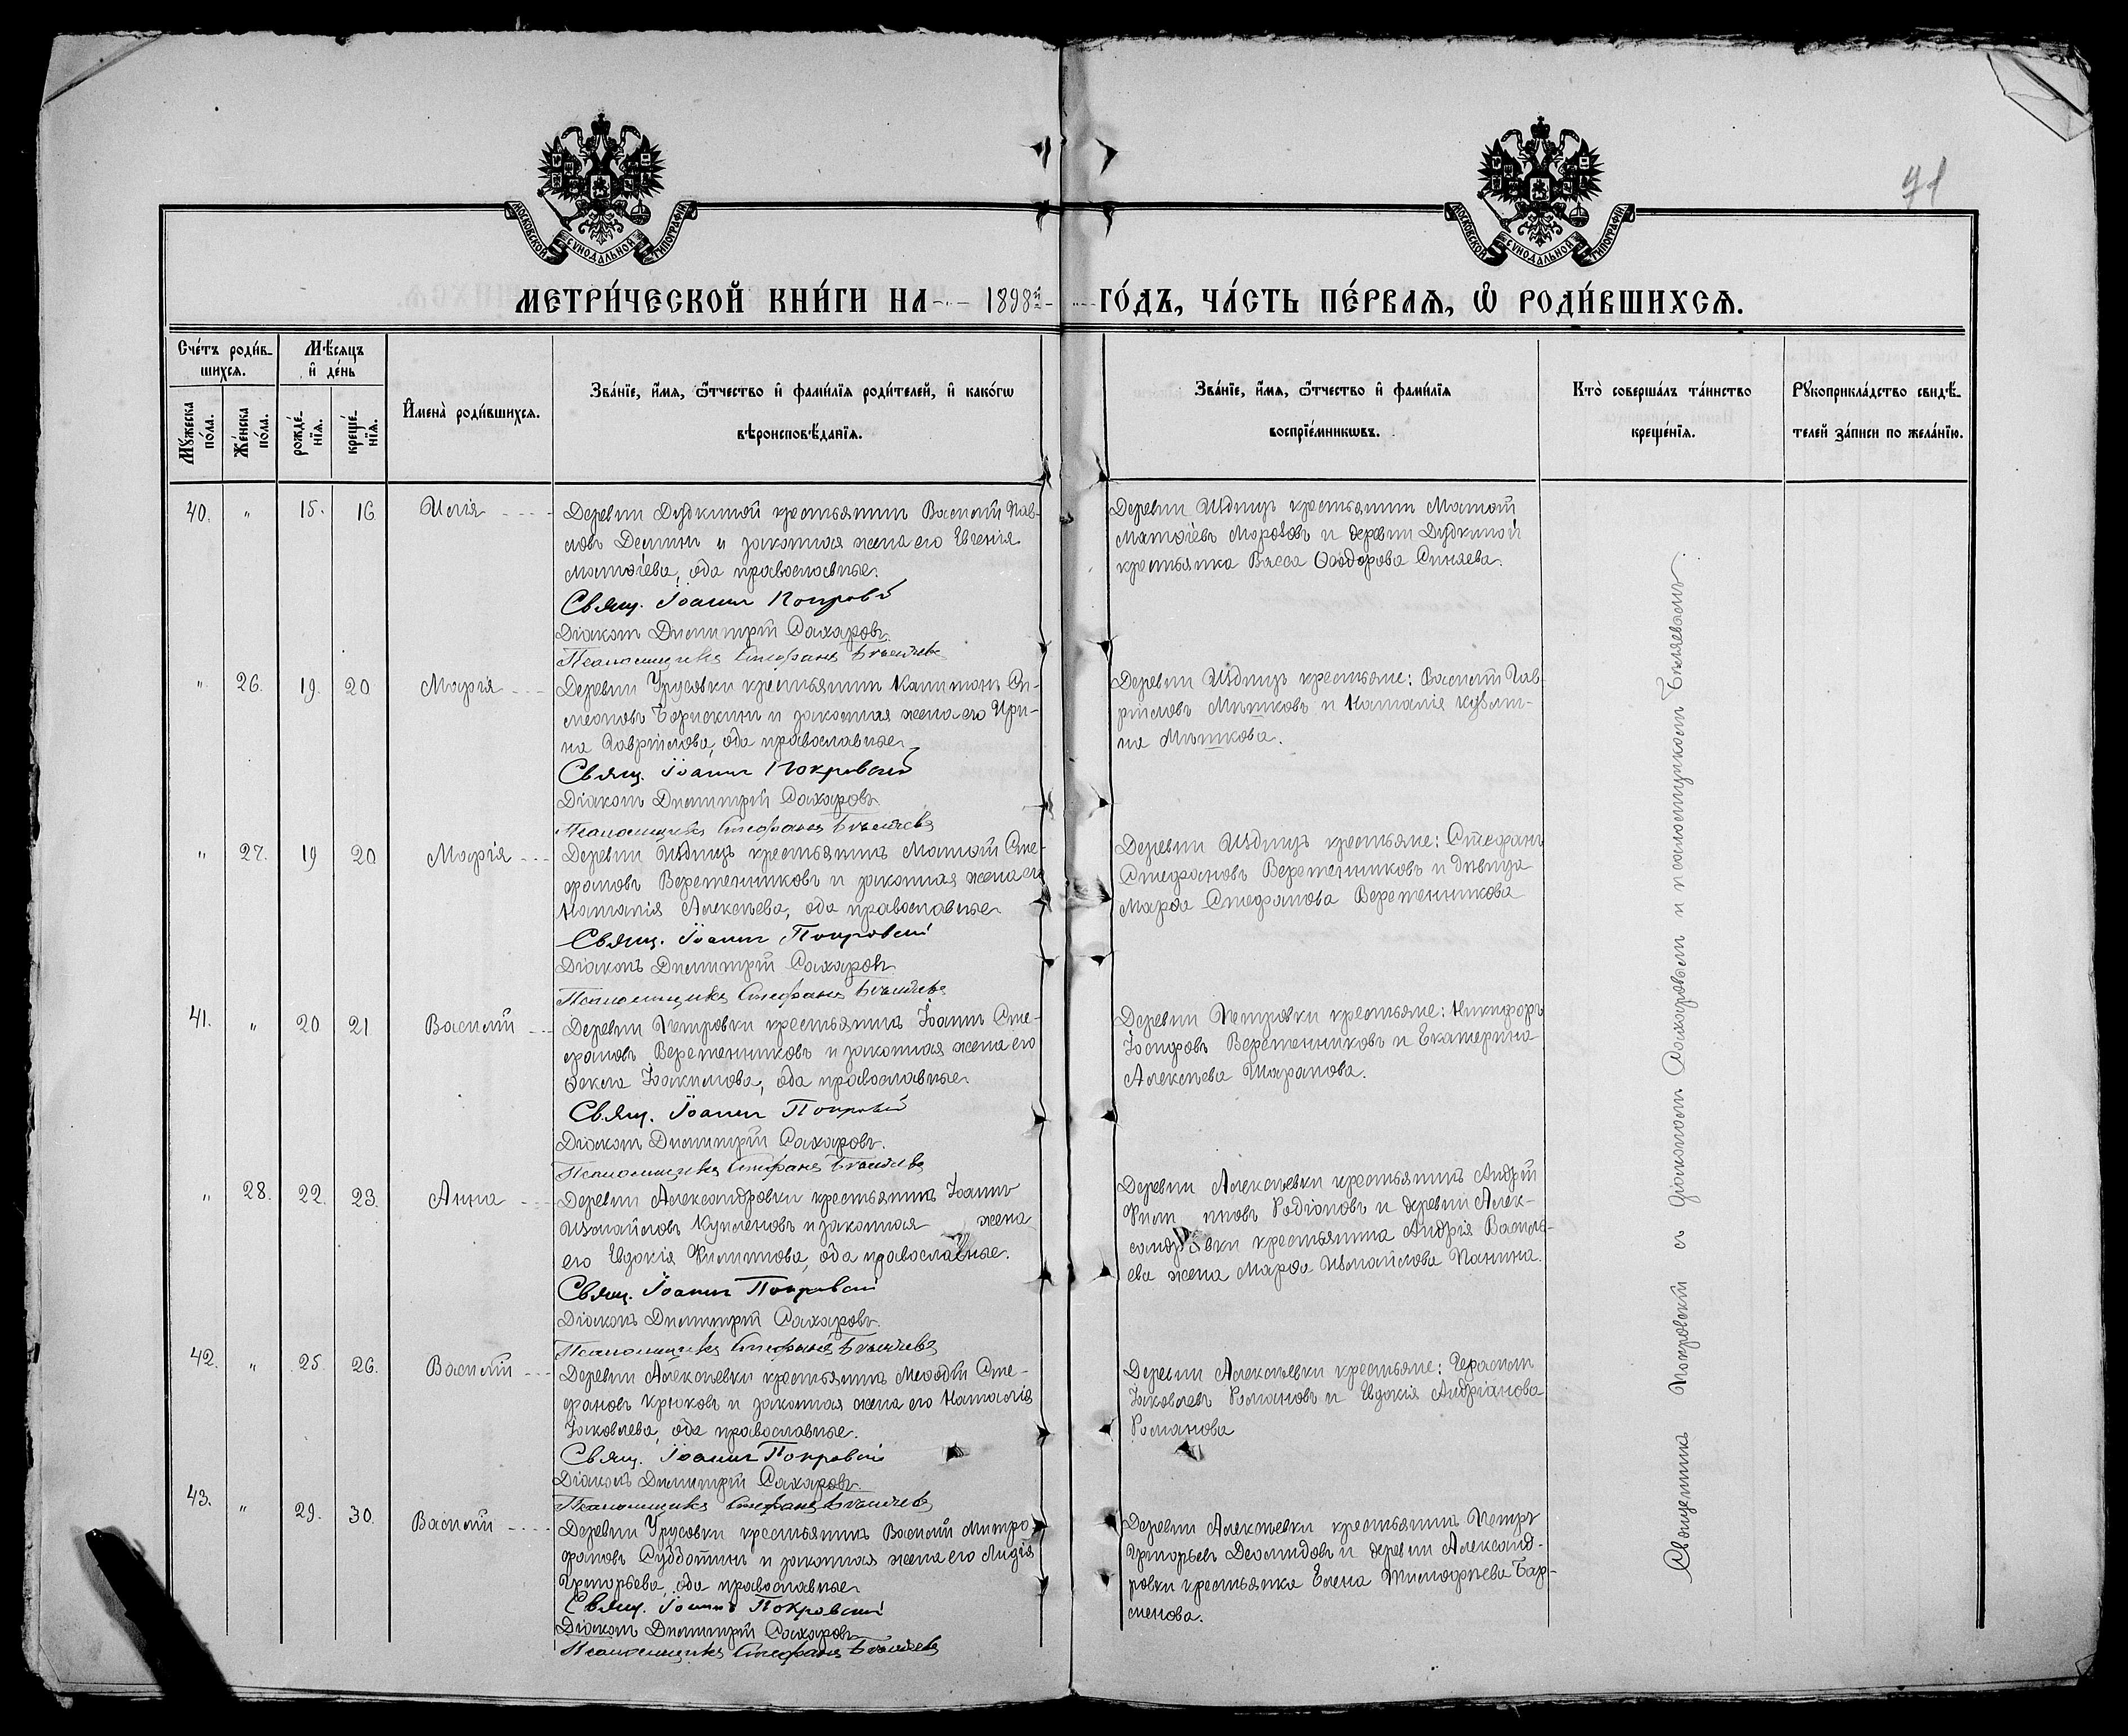 МОСКОВСКОЙ СѴНОДАЛЬНОЙ ТИПОГРАФІИ
МОСКОВСКОЙ СѴНОДАЛЬНОЙ ТИПОГРАФІИ
МЕТРИ́ЧЕСКОЙ КНИ́ГИ НА 1898й ГО́ДЪ, ЧА́СТЬ ПЕ́РВАѦ, Ѡ҆ РОДИ́ВШИХСѦ.
Сче́тъ роди́в-
шихсѧ.
Мѣ́сѧцъ
и҆ де́нь
Мꙋ́жеска
по́ла.
Же́нска
по́ла.
рожде́-
нїѧ.
креще́-
нїѧ.
И҆мена̀ роди́вшихсѧ.
Зва́нїе, и҆́мѧ, ѻ҆́тчество и҆ фами́лїѧ роди́телей, и҆ како́гѡ
вѣроисповѣ́данїѧ.
Зва́нїе, и҆́мѧ, ѻ҆́тчество и҆ фами́лїѧ
воспрїе́мникѡвъ.
Кто̀ соверша́лъ та́инство
креще́нїѧ.
Рꙋкоприкла́дство свидѣ́-
телей за́писи по жела́нїю.
40. " 15. 16 Илія
Деревни Дудкиной крестьянинъ Василій Пав-
ловъ Деминъ и законная жена его Евгенія
Матѳіева, оба православные.
Свящ. Іоаннъ Покровскій
Діаконъ Димитрій Сахаровъ
Псаломщикъ Стефанъ Бѣляевъ
Деревни крестьянинъ Матѳій
Матѳіевъ Морозовъ и деревни Дудкиной
крестьянка Васса Ѳеодорова Синяева.
" 26. 19. 20 Марія
Деревни Урусовки крестьянинъ Капитонъ Си-
меоновъ Борискинъ и законная жена его Ири-
на Гавріилова, оба православные.
Свящ. Іоаннъ Покровскій
Діаконъ Димитрій Сахаровъ
Псаломщикъ Стефанъ Бѣляевъ
Деревни крестьяне: Василій Гав-
ріиловъ Мишковъ и Наталія Кузьми-
на Мишкова.
" 27. 19 20 Марія
Деревни крестьянинъ Матѳій Сте-
фановъ Веретенниковъ и законная жена его
Наталія Алексѣева, оба православные.
Свящ. Іоаннъ Покровскій
Діаконъ Димитрій Сахаровъ
Псаломщикъ Стефанъ Бѣляевъ
Деревни крестьяне: Стефанъ
Стефановъ Веретенниковъ и дѣвица
Марѳа Стефанова Веретенникова
41. " 20 21 Василій
Деревни Петровки крестьянинъ Іоаннъ Сте-
фановъ Веретенниковъ и законная жена его
Ѳекла Іоакимова, оба православные.
Свящ. Іоаннъ Покровскій
Діаконъ Димитрій Сахаровъ.
Псаломщикъ Стефанъ Бѣляевъ
Деревни Петровки крестьяне: Никифоръ
Іосифовъ Веретенниковъ и Екатерина
Алексѣева Шарапова.
" 28. 22. 23. Анна
Деревни Александровки крестьянинъ Іоаннъ
Измайловъ и законная жена
его Евдокія Филиппова, оба православные.
Свящ. Іоаннъ Покровскій
Діаконъ Димитрій Сахаровъ.
Псаломщикъ Стефанъ Бѣляевъ
Деревни Алексѣевки крестьянинъ Андрій
Фили пповъ Родіоновъ и деревни Алек-
сандровки крестьянина Андрія Василь-
ева жена Марѳа Измайлова Панина.
42. " 25. 26. Василій
Деревни Алексѣевки крестьянинъ Меѳодій Сте-
фановъ Крюковъ и законная жена его Наталія
Іаковлева, оба православные.
Свящ. Іоаннъ Покровскій
Діаконъ Димитрій Сахаровъ
Псаломщикъ Стефанъ Бѣляевъ
Деревни Алексѣевки крестьяне: Герасимъ
Іаковлевъ Романовъ и Евдокія Андріанова
Романова
43. " 29. 30. Василій
Деревни Урусовки крестьянинъ Василій Митро-
фановъ Субботинъ и законная жена его Лидія
Григорьева, оба православные.
Свящ. Іоаннъ Покровскій
Діаконъ Димитрій Сахаровъ
Псаломщикъ Стефанъ Бѣляевъ
Деревни Алексѣевки крестьянинъ Петръ
Григорьевъ Деомидовъ и деревни Александ-
ровки крестьянка Елена Тимофѣева Бар-
менова.
Священникъ Покровскій съ діакономъ Сахаровымъ и псаломщикомъ Бѣляевымъ.